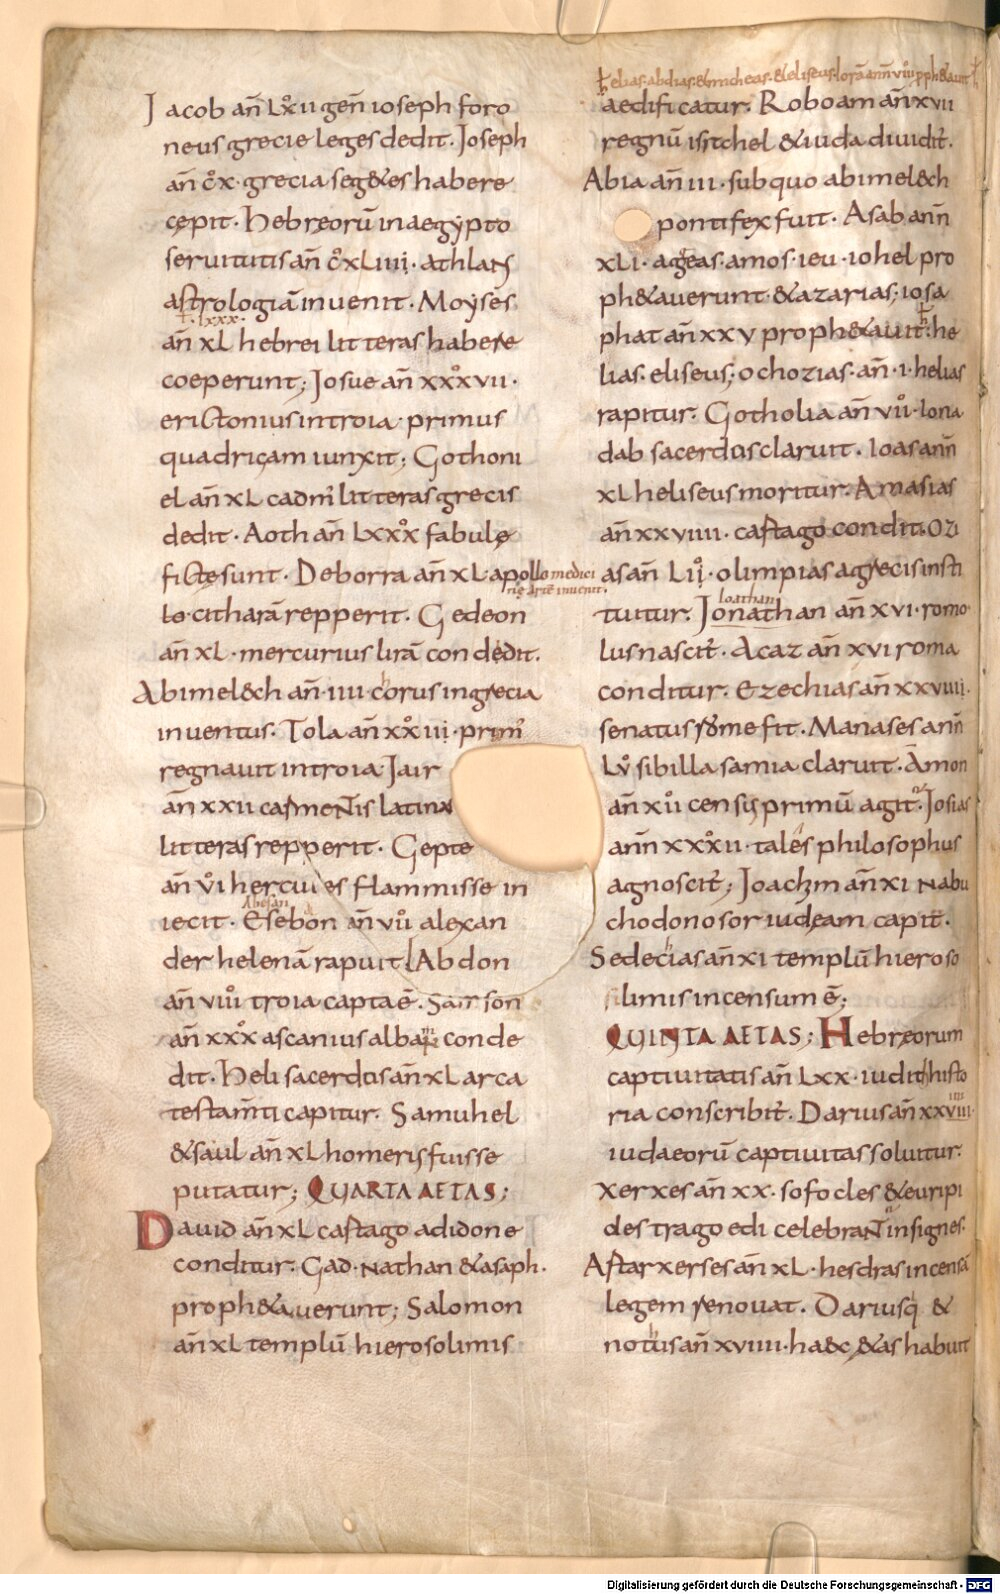 Jacob an̄ Lx̊ıı gen̄ ıoseph foro
neus grecie leges dedit. Joseph
an̄ c̊x. grecia seg&es habere
cępit. Hebreorū in aegypto
seruitutis an̄ c̊xLıııı. athlans
astrologiā inuenit. Moyses
.lxxx.
an̄ xL hebrei litteras habere
coeperunt; Josue an̄ xxx̊vıı.
erictonius in troia primus
quadrigam iunxit; Gothoni
el an̄ xL cadm' litteras grecis
dedit. Aoth an̄ Lxxx̊ fabulę
fictę sunt. Deborra an̄ xL apollo medici
nę artē inuenit.
lo. citharā repperit. Gedeon
an̄ xL. mercurius lirā condedit.
Abimel&ch an̄. ıııı. chorus in grecia
inuentus. Tola an̄ xx̊ııı. prim'
regnauit in troia Jair
an̄ xxıı carmentis latinas
litteras repperit. Gepte
an̄ v̊ı hercules flammis se in
Abesan
iecit. Esebon an̄ vıı̊ alexan
der helenā rapuit. Abdon
an̄ vııı̊ troia capta ē. Samson
an̄ xx̊x ascanius albam conde
dit. Heli sacerdos an̄ xL arca
testam̄ti capitur. Samuhel
& saul an̄ xL homerus fuisse
putatur; QUARTA AETAS;
Dauid an̄ xL cartago a didone
conditur. Gad. Nathan & asaph.
proph&auerunt; Salomon
an̄ xL templū hierosolimis
elias. abdias. & micheas. & eliseus. Iorā ann̄ vııı̊ pph&auit
aedificatur. Roboam an̄ xvıı
regnū isrƚ chel & iuda diuidit̄.
Abia an̄ ııı. sub quo abimel&ch
pontifex fuit. Asab ann̄
xLı. ageas. amos. ieu. iohel pro
ph&auerunt. & azarias; iosa
phat an̄ xxv proph&auit. he
lias. eliseus; ochozias. an̄. ı. helias
rapitur. Gotholia an̄ vıı̊. Iona
dab sacerdos claruit. Ioas ann̄
xL heliseus moritur. Amasias
an̄ xxvıııı. cartago condit̄. Ozi
as an̄ Lıı̊. olimpias a grecis insti
Ioathan
tuitur. Jonathan an̄ xvı. romo
lus nascit̄. Acaz an̄ xvı roma
conditur. Ezechias an̄ xxvıııı.
senatus rome fit. Manases ann̄
Lv̊ sibilla samia claruit. Amon
an̄ xıı̊ censis primū agit̄. Josias
ann̄ xxx̊ıı. tales philosophus
agnoscit̄; Joachim an̄ xı Nabu
chodonosor iudęam capit̄.
Sedechias an̄ xı templū hieroso
limis incensum ē;
QUINTA AETAS; Hebreorum
captiuitatis an̄ Lxx. iudith histo
ria conscribit̄. Darius an̄ xxvııı
ıııı
iudaeorū captiuitas soluitur.
Xerxes an̄ xx. sofocles & euripi
des tragoedi celebrantur insignes.
Astarxerses an̄ xL. hesdras incensā
legem renouat. Darius q &
nothus an̄ xvıııı. haec &as habuit